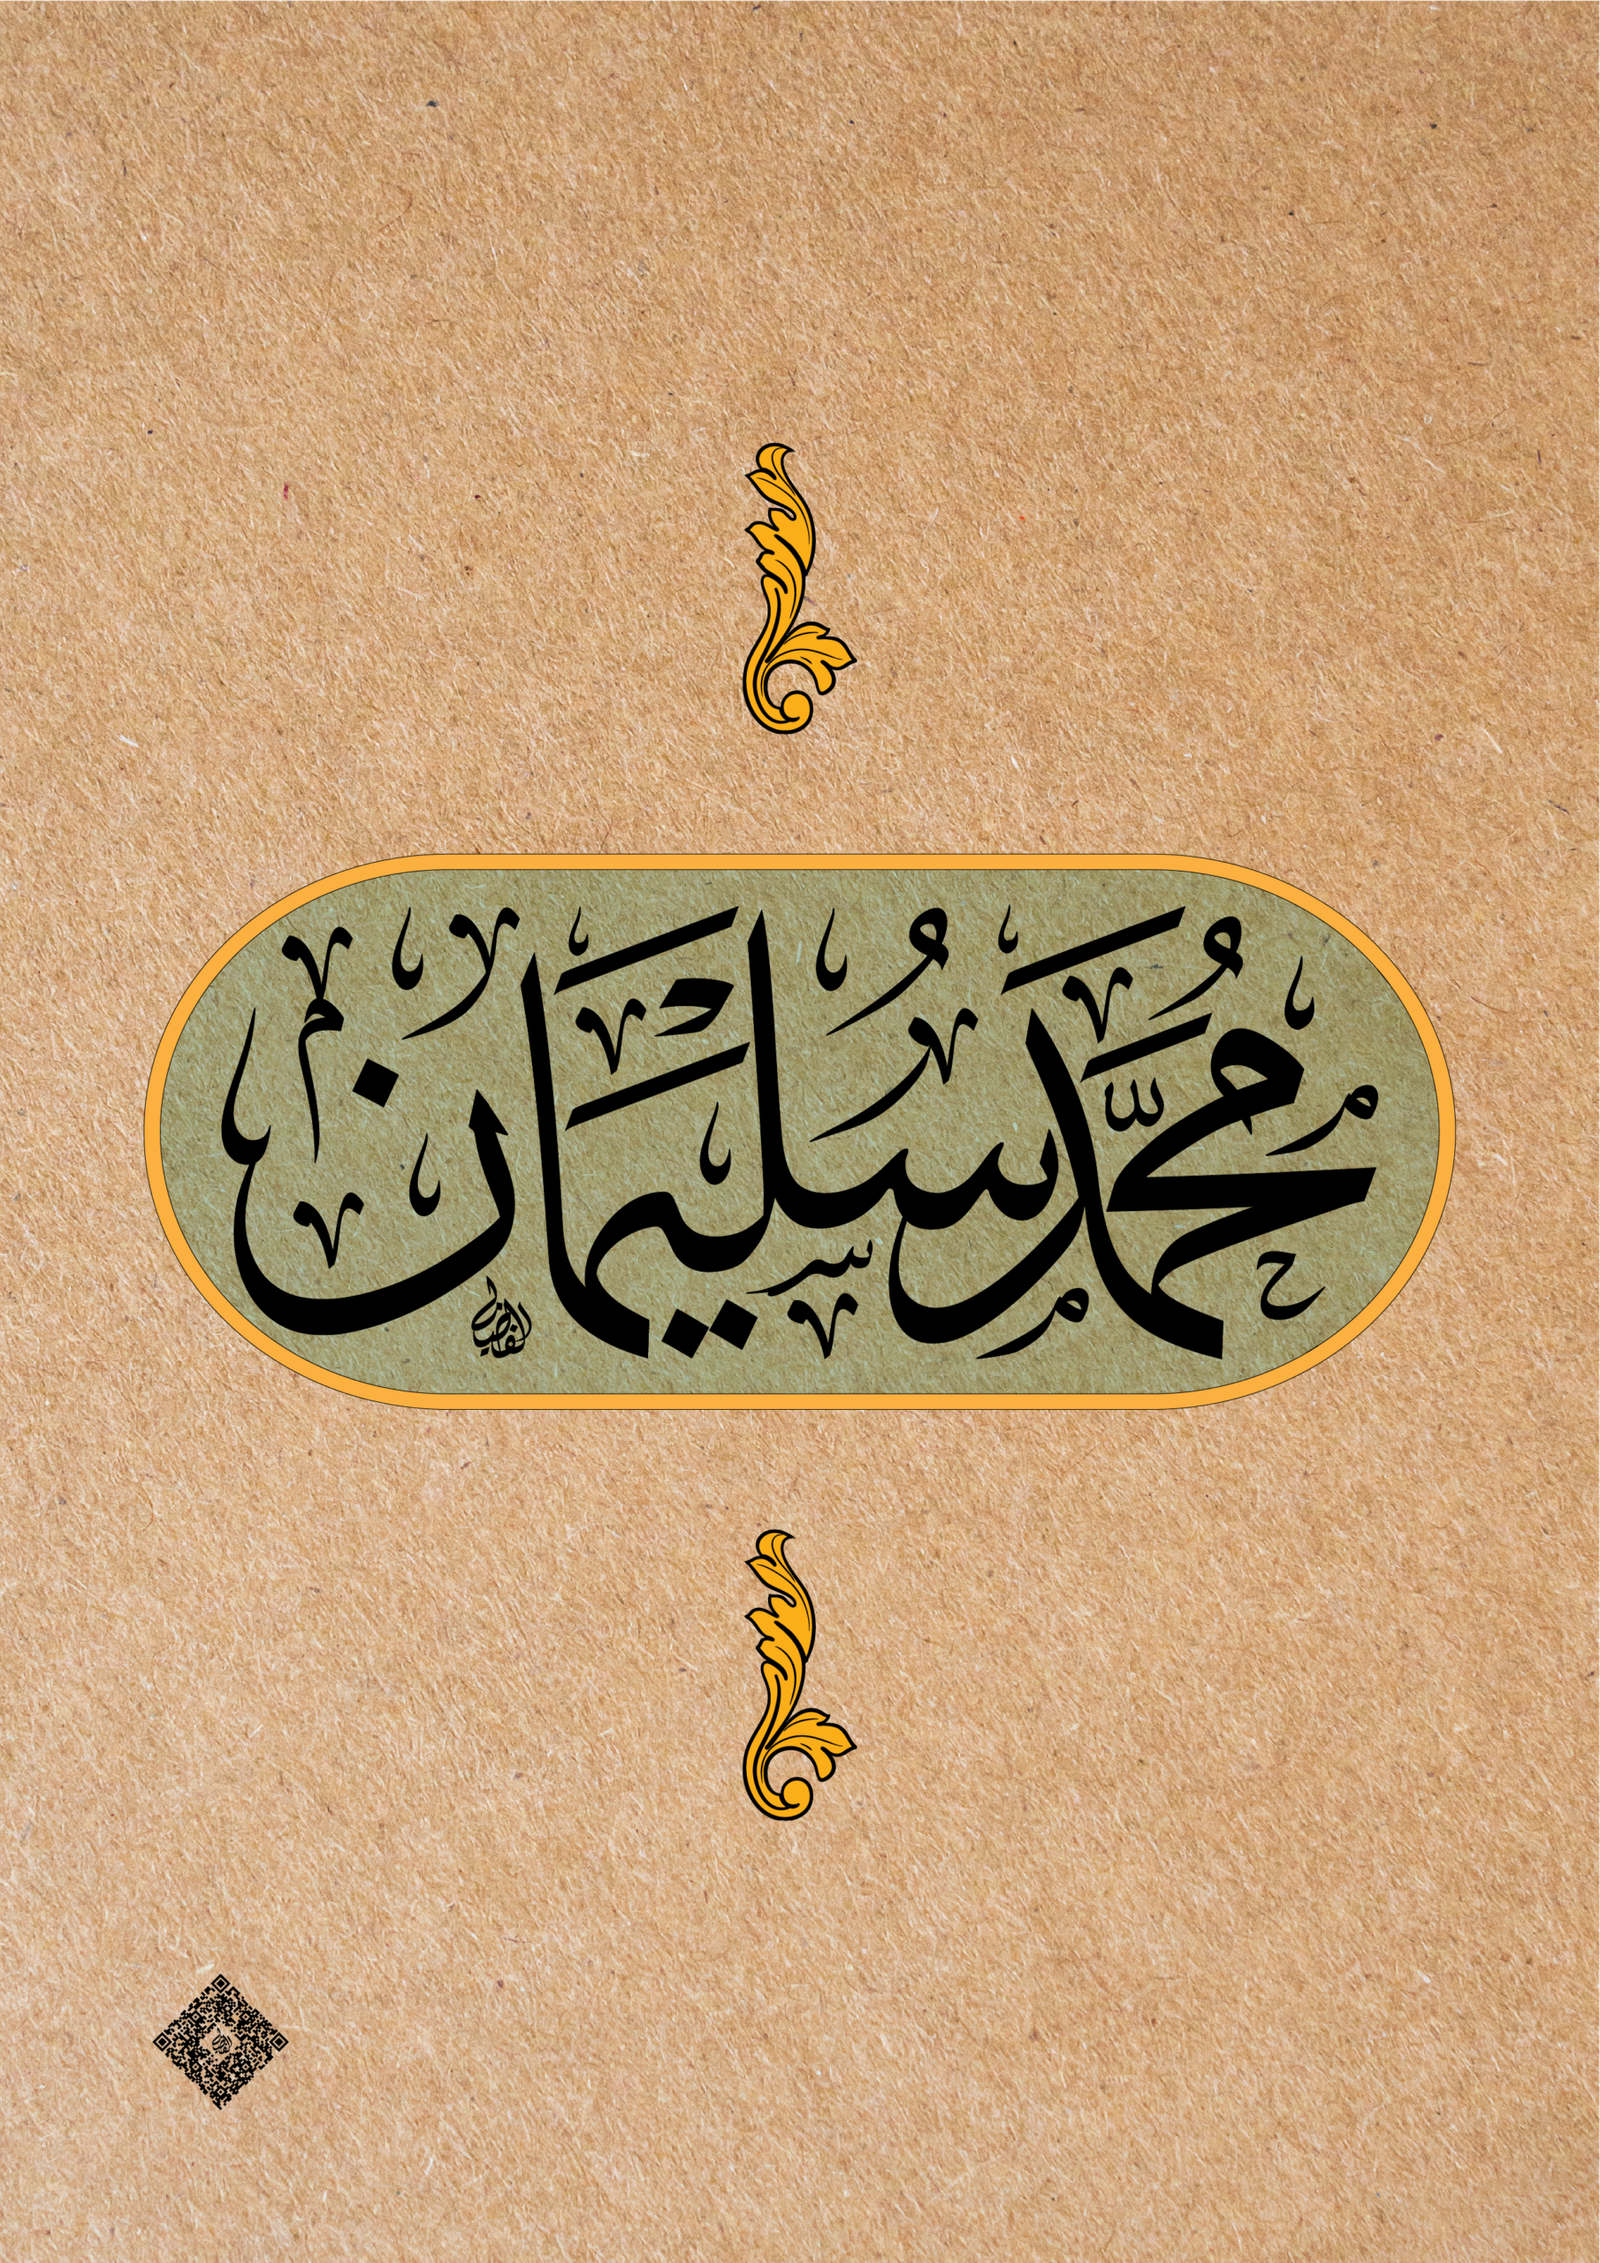 مُحَمَّد سُلَيْمَان